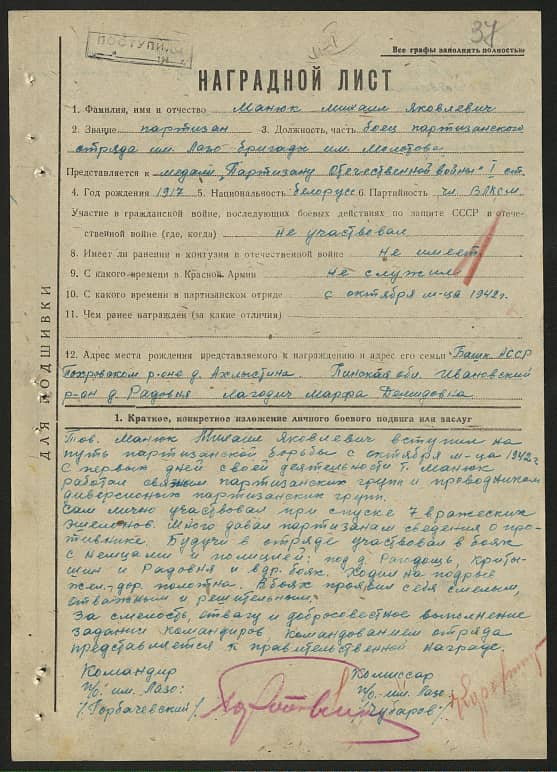 37
ПОСТУПИЛ
Все графы заполнять полностью
НАГРАДНОЙ ЛИСТ
1. Фамилия, имя и отчество Манюк Михаил Яковлевич
2. Звание партизан 3. Должность, часть боец партизанского
отряда им. Лазо бригады им. Молотова
Представляется к медали „Партизану Отечественной войны" I ст.
4. Год рождения 1917 5. Национальность белорусс 6. Партийность чл. ВЛКСМ
Участие в гражданской войне, последующих боевых действиях по защите СССР и отече-
ственной войне (где, когда) Не участвовал
8. Имеет ли ранении и контузии в отечественной войне Не имеет
9. С какого времени в Красной Армии Не служил
10. С какого времени в партизанском отряде с октября м-ца 1942 г.
11. Чем ранее награжден (за какие отличия)
12. Адрес места рождения представляемого к награждению и адрес его семьи Башк. АССР
Покровском р-оне д. Ахлыстина. Пинская обл. Ивановский
р-он д. Радовня Лагодич Марфа Демидовна
ДЛЯ ПОДШИВКИ
1. Краткое, конкретное изложение личного боевого подвига или заслуг
Тов. Манюк Михаил Яковлевич вступил на
путь партизанской борьбы с октября м-ца 1942 г.
С первых дней своей деятельности т. Манюк
работал связным партизанских групп и проводником
диверсионных партизанских групп.
Сам лично участвовал при спуске 7 вражеских
эшелонов. Много давал партизанам сведения о про-
тивнике. Будучи в отряде участвовал в боях
с немцами и полицией: под д.
и Радовня и в др. боях. Ходил на подрыв
жел.-дор. полотна. В боях проявил себя смелым,
отважным и решительным.
За смелость, отвагу и добросовестное выполнение
заданий командиров, командованием отряда
представляется к правительственной награде.
Командир Комиссар
п/о. им. Лазо: п/о. им. Лазо
/Горбачевский/ /Чубаров/